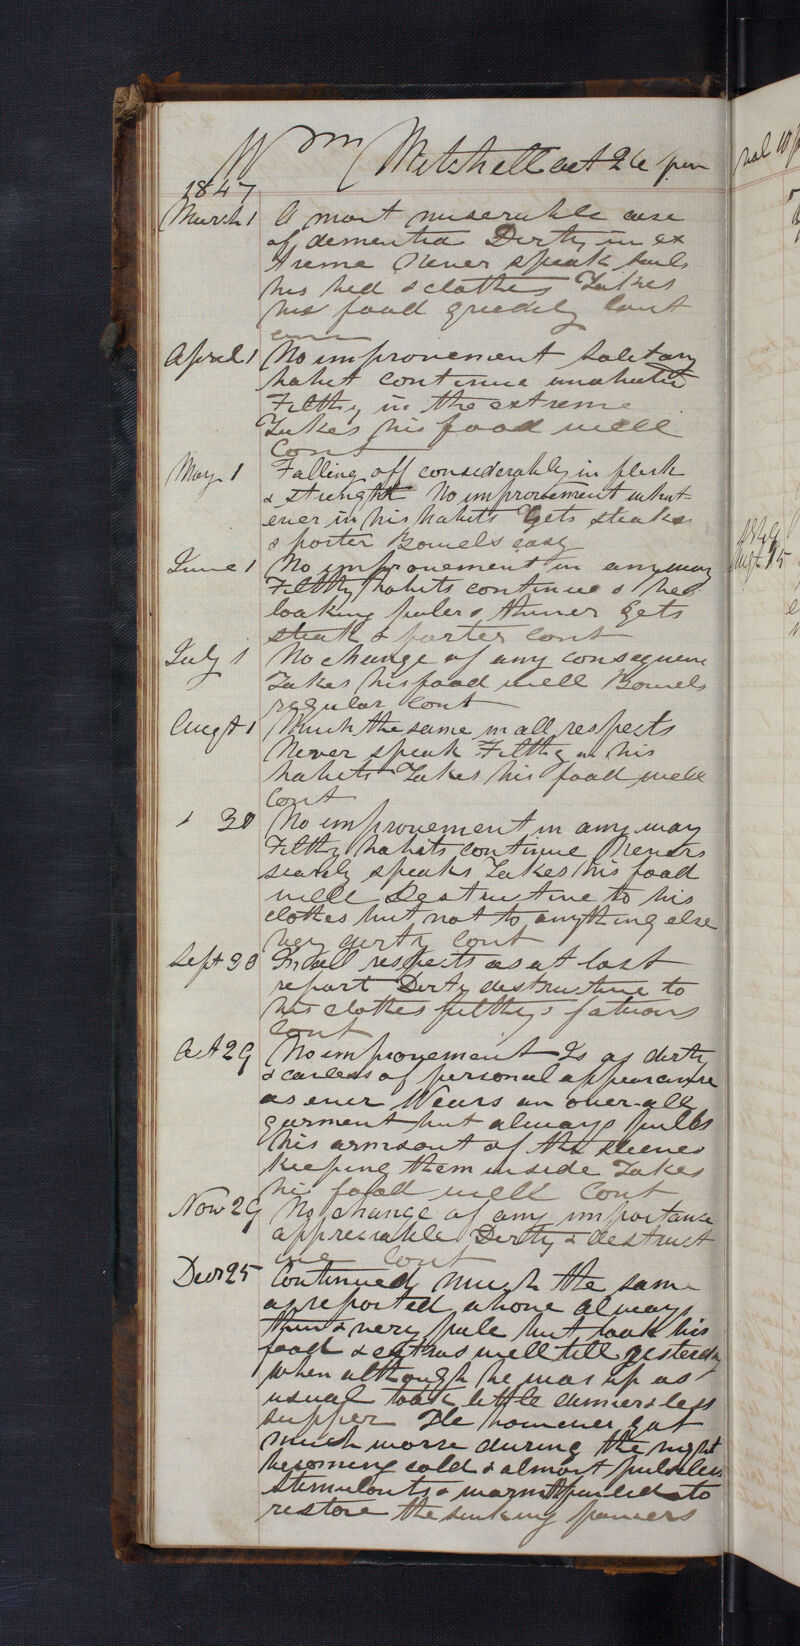 Wm Mitchell aet 26 pau
1847
March 1 A most miserable case
of dementia Dirty in ex
treme Never speak soils
his bed & clothes Takes
his food greedily Cont
April 1 No improvement Solitary
habit continue unabated
Filthy in the extreme
Takes his food well
Cont
May 1 Falling off considerably in flesh
& strength No improvement what
ever in his habits Gets steaks
& porter Bowels easy
June 1 No improvement in any way
Filthy habits continue & he is
looking paler & thiner Gets
steak & porter Cont
July 1 No change of any consequence
Takes his food well Bowels
regular Cont
Augt 1 Much the same in all respects
Never speak Filthy in his
habits Takes his food well
Cont
" 30 No improvement in any way
Filthy habits continue Never
scarcely speaks Takes his food
well Destructive to his
clothes but not to anything else
Very dirty Cont
Sept 30 In all respects as at last
report Dirty destructive to
his clothes filthy & fatuous
Cont
Oct 29 No improvement Is as dirty
& careless of personal appearance
as ever Wears an over-all
garment but always pulls
his arms out of the sleeves
keeping them inside Takes
his food well Cont
Nov 29 No change of any importance
appreciable Dirty & destruct
ive Cont
Decr 25 Continued much the same
as reported above Always
thin & very pale but took his
food & extras well till yesterday
when although he was up as
usual took little dinner & less
supper He however got
much worse during the night
becoming cold & almost pulseless
Stimulants & warmth failed to
restore the sinking powers
1849
Augt 15